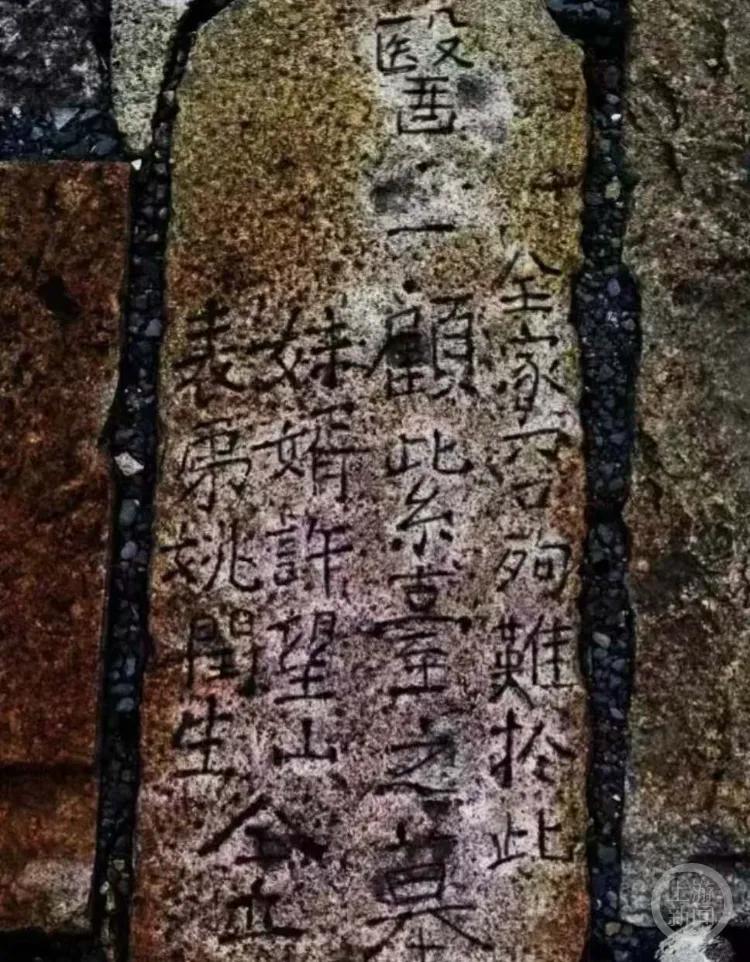 全家五口殉難扵此
醫 顧紫臺之墓
妹婿許望山
表弟姚閏生
仝立
上游新闻